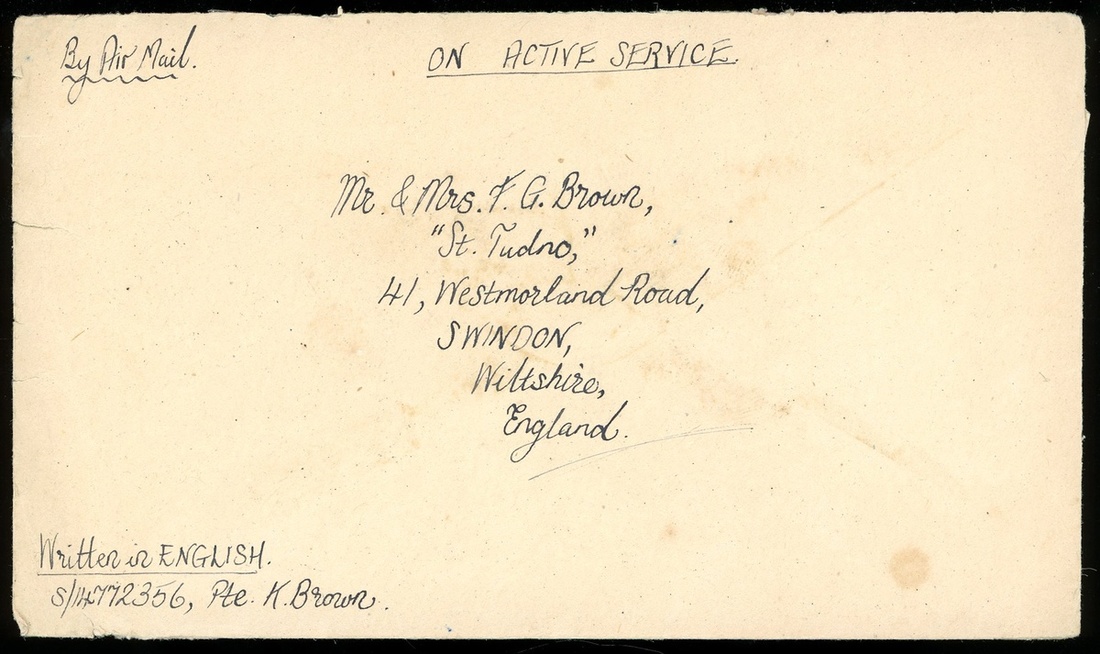 By Air Mail.
ON ACTIVE SERVICE.
Mr. & Mrs. F. G. Brown,
"St. Tudno,"
41, Westmorland Road,
SWINDON,
Wiltshire,
England.
Written in ENGLISH.
S/14772356, Pte. K. Brown.